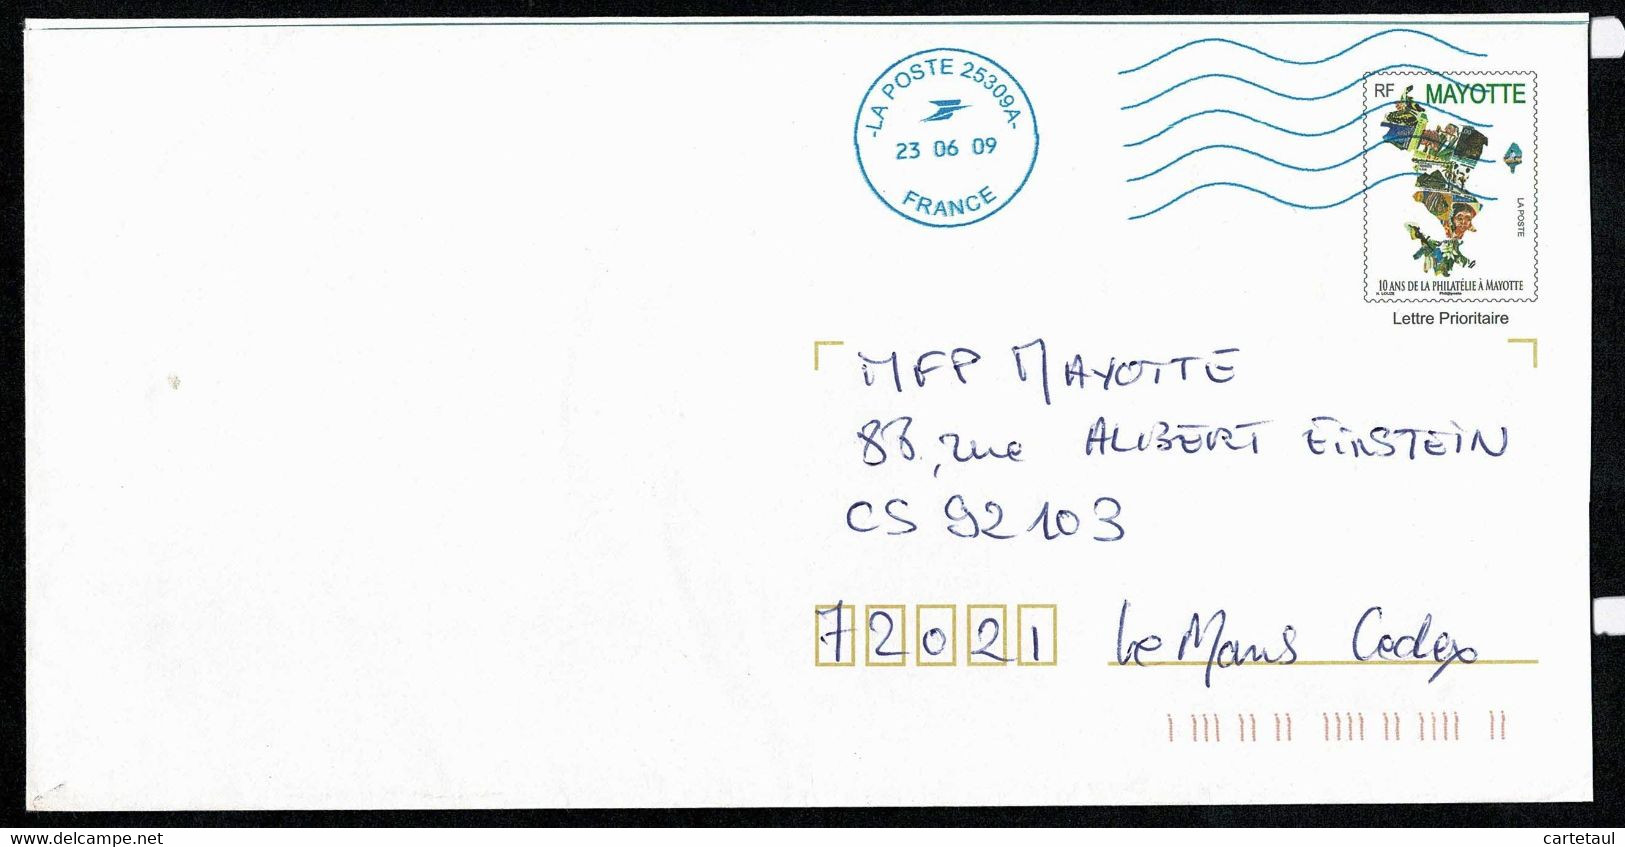 -LA POSTE 25309A-
23 06 09
FRANCE
RF MAYOTTE
LA POSTE
10 ANS DE LA PHILATÉLIE À MAYOTTE
Lettre Prioritaire
MFP MAYOTTE
88, rue ALBERT EINSTEIN
CS 92103
72021 Le Mans Cedex
delcampe.net
cartetaul